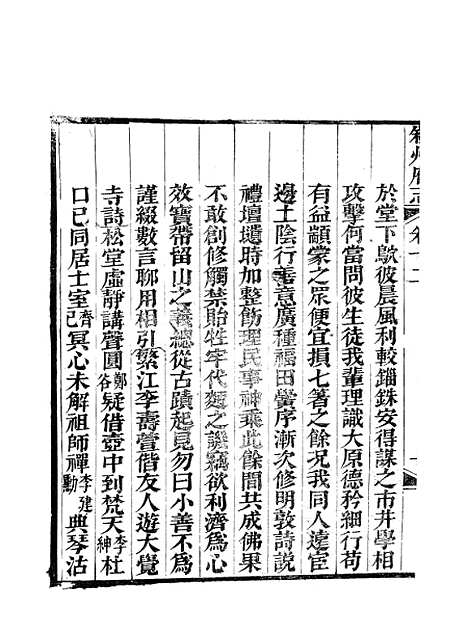 叙州府志 卷十二
於堂下歔彼晨風利較錙銖安得謀之市井學相
攻擊何當問彼生徒我輩理識大原德矜細行苟
有益顓蒙之眾便宜損七箸之餘况我同人遠宦
邊土陰行垂意廣種福田黌序漸次修明敦詩說
禮壇壝時加整飭理民事神乘此餘閒共成佛果
不敢創修觸禁貽牲牢代麵之譏竊欲利濟為心
效寶帶留山之義總從古蹟起見勿曰小善不為
謹綴數言聊用相引繁江李壽萱偕友人遊大覺
寺詩松堂虛靜講聲圓鄭谷疑借壺中到梵天李紳杜
口已同居士室齊己冥心未解祖師禪李建勳典琴沽